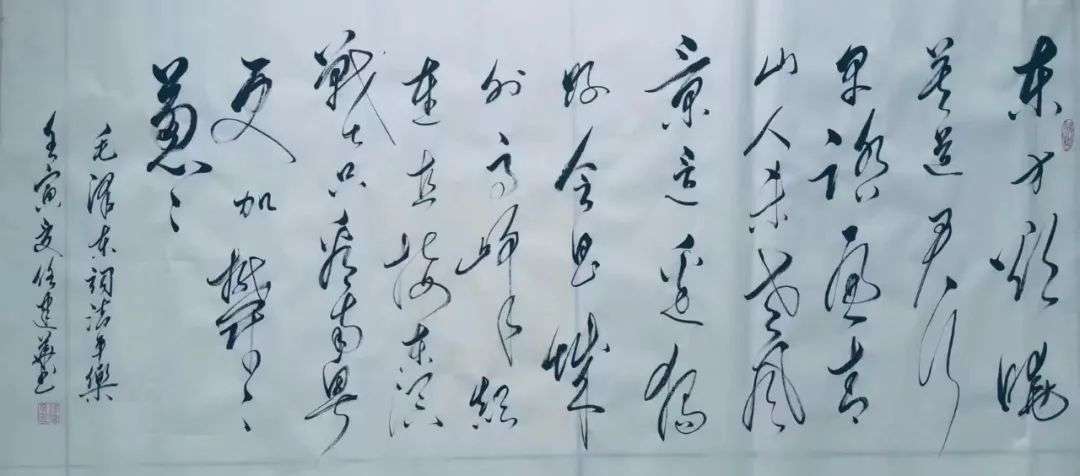 东方欲晓
莫道君行
早踏遍青
山人未老风
景这边独
好会昌城
外高峰颠
连直接东溟
戰士指看南粤
更加鬱々
葱々
毛泽东詞清平樂
壬寅夏建华书